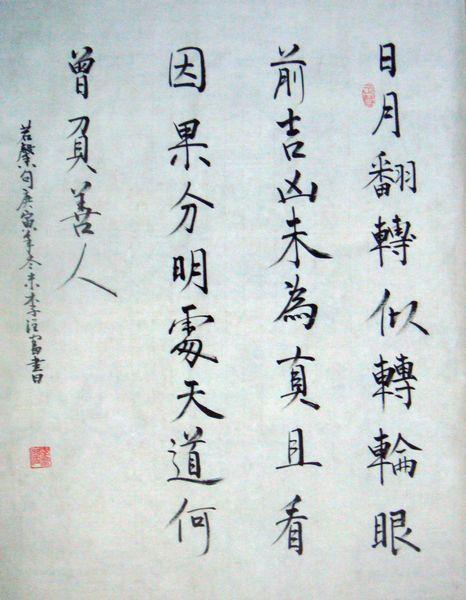 日月翻轉似轉輪眼
前吉凶未為真且看
因果分明處天道何
曾負善人
若馨句庚寅年冬末李汪富書